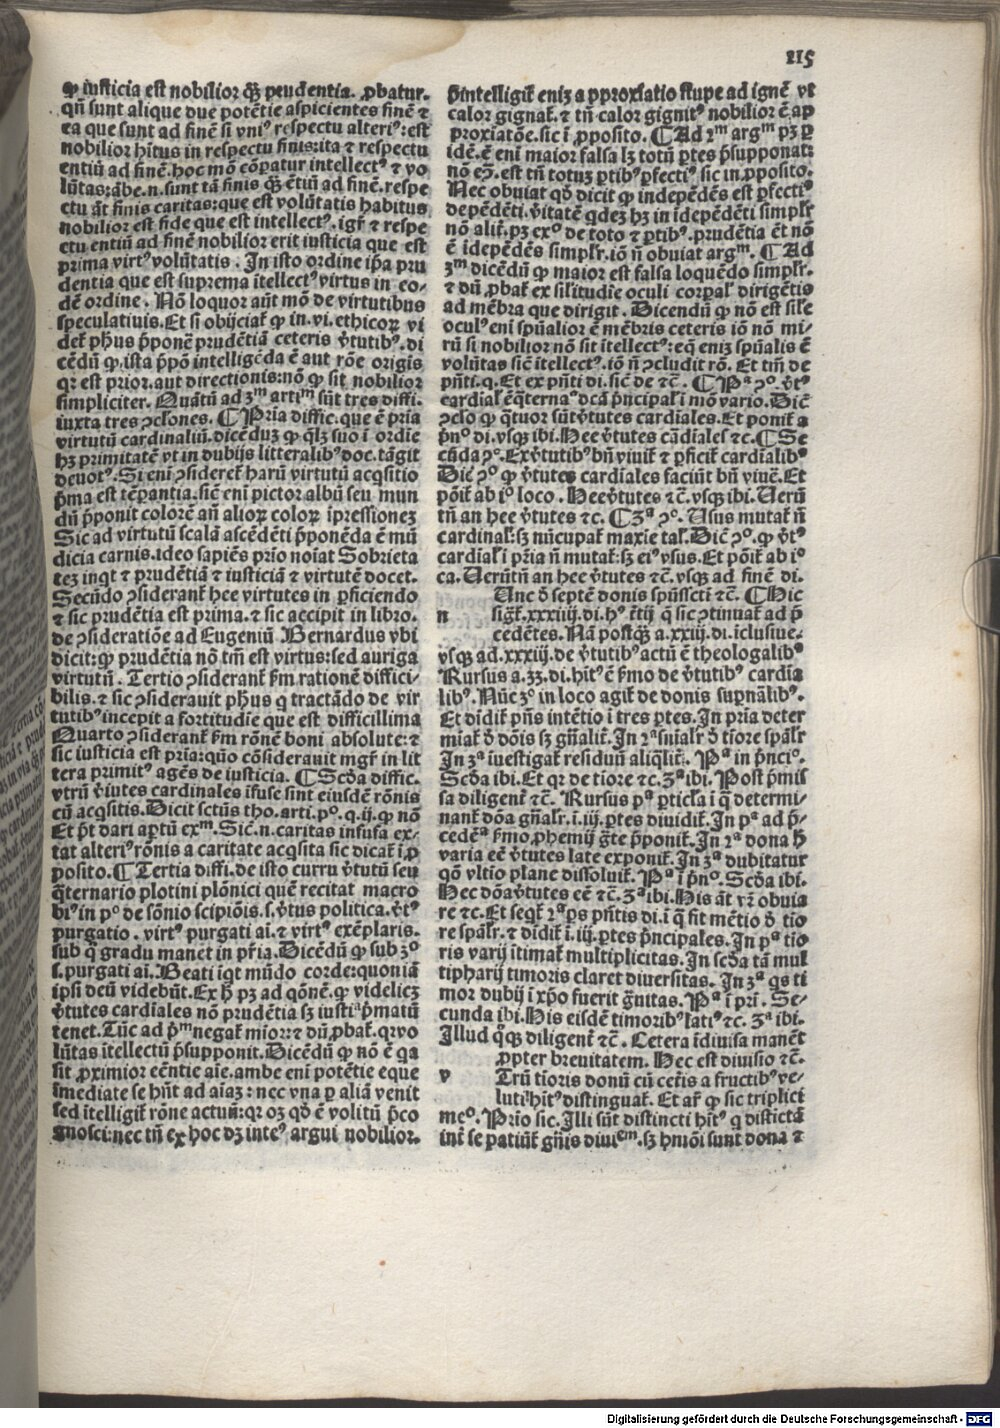 215
ꝙ iusticia est nobilior q̃ꝫ peudentia. ꝓbatur.
qñ sunt alique due potẽtie aspicientes finẽ ⁊
ea que sunt ad finẽ si vniꝰ respectu alteriꝰ: est
nobilior hĩtus in respectu finis: ita ⁊ respectu
entiũ ad finẽ. hoc mõ cõꝑatur intellectꝰ ⁊ vo
lũtas: ãbe .n. sunt tã finis q̃ꝫ ẽtiũ ad finẽ. respe
ctu ãt finis caritas: que est volũtatis habitus
nobilior est fide que est intellectꝰ. igit̃ ⁊ respe
ctu entiũ ad finẽ nobilior erit iusticia que est
prima virtꝰ volũtatis. In isto ordine ip̃a pru
dentia que est suprema ĩtellectꝰ virtus in eo-
dẽ ordine. Nõ loquor aũt mõ de virtutibus
speculatiuis. Et si obijciat̃ ꝙ in .vi. ethicoꝝ vi
det̃ ph̃us p̃ponẽ prudẽtiã ceteris v̾tutibꝰ. di
cẽdũ ꝙ ista p̃põ intelligẽda ẽ aut rõe origis
qꝛ est prior. aut directionis: nõ ꝙ sit nobilior
simpliciter. Quãtũ ad 3ᵐ artiᵐ sũt tres diffi.
iuxta tres ꝯclones. ¶ Pria diffic. que ẽ pria
virtutũ cardinaliũ. dicẽduꝫ ꝙ q̃lꝫ suo ĩ ordie
hꝫ primitatẽ vt in dubijs litteralibꝰ doc. tãgit
deuotꝰ. Si eni ꝯsideret̃ harũ virtutũ acq̃sitio
p̃ma est tẽꝑantia. sic̃ eni pictor albũ seu mun
dũ p̃ponit colorẽ añ alioꝝ coloꝝ ĩpressioneꝫ
Sic ad virtutũ scalã ascẽdẽti p̃ponẽda ẽ mũ
dicia carnis. ideo sapiẽs prio noiat Sobrieta
teꝫ inq̃t ⁊ prudẽtiã ⁊ iusticiã ⁊ virtutẽ docet.
Secũdo ꝯsiderant̃ hee virtutes in ꝑficiendo
⁊ sic prudẽtia est prima. ⁊ sic accipit in libro.
de ꝯsideratiõe ad Eugeniũ Bernardus vbi
dicit: ꝙ prudẽtia nõ tm̃ est virtus: sed auriga
virtutũ. Tertio ꝯsiderant̃ ẜm rationẽ diffici-
bilis. ⁊ sic ꝯsiderauit ph̃us q tractãdo de vir
tutibꝰ incepit a fortitudie que est difficillima
Quarto ꝯsiderant̃ ẜm rõnẽ boni absolute: ⁊
sic iusticia est pria: quo cõsiderauit mgr̃ in lit
tera primitꝰ agẽs de iusticia. ¶ Scd̃a diffic.
vtrũ v̾iutes cardinales ĩfuse sint eiusdẽ rõnis
cũ acq̃sitis. Dicit sctũs tho. arti. pº. q. ij. ꝙ nõ
Et p̃t dari aꝑtũ exᵐ. Sic̃ .n. caritas infusa ex-
tat alteriꝰ rõnis a caritate acq̃sita sic dicat̃ ĩ ꝓ
posito. ¶ Tertia diffi. de isto curru v̾tutũ seu
q̃ternario plotini plõnici quẽ recitat macro
biꝰ in pº de sõnio scipiõis. s. v̾tus politica. v̾tꝰ
purgatio. virtꝰ purgati ai. ⁊ virtꝰ exẽplaris.
sub q̃ gradu manet in pr̃ia. Dicẽdũ ꝙ sub 3º
s. purgati ai. Beati iq̃t mũdo corde: quoniã
ipsi deũ videbũt. Ex h̾ pꝫ ad q̃õnẽ. ꝙ videlicꝫ
v̾tutes cardiales nõ prudẽtia sꝫ iustiᵃ p̃matũ
tenet. Tũc ad p̃ᵐ negat̃ mioꝛ: ⁊ dũ ꝓbat̃. qꝛ vo
lũtas ĩtellectũ p̃supponit. Dicẽdũ ꝙ nõ ẽ qa
sit ꝓximior eẽntie aie. ambe eni potẽtie eque
ĩmediate se hñt ad aiaꝫ: nec vna ꝑ aliã venit
sed ĩtelligit̃ rõne actuũ: qꝛ oꝫ qd̾ ẽ volitũ p̃co
gnosci: nec tñ ex hoc dꝫ inteꝰ argui nobilior.
p̃intelligit̃ eniꝫ a pproxĩatio stupe ad ignẽ vt
calor gignat̃. ⁊ tñ calor gignitꝰ nobilior ẽ ap
proxiatõe. sic ĩ ꝓposito. ¶ Ad 2ᵐ argᵐ pꝫ ꝑ
idẽ. ẽ eni maior falsa lꝫ totũ ꝑtes p̃supponat:
nõ eꝰ. est tñ totuꝫ ꝑtibꝰ ꝑfectiꝰ sic in ꝓposito.
Nec obuiat qd̾ dicit ꝙ independẽs est ꝑfectiꝰ
depẽdẽti. v̾itatẽ qdeꝫ hꝫ in ĩdepẽdẽti simplr̃
nõ alit̃. pꝫ exº de toto ⁊ ꝑtibꝰ. prudẽtia ẽt nõ
ẽ idepẽdẽs simplr̃. iõ ñ obuiat argᵐ. ¶ Ad
3ᵐ dicẽdũ ꝙ maior est falsa loquẽdo simplr̃.
⁊ dũ ꝓbat̃ ex sil̃itudie oculi corꝑal̃ dirigẽtis
ad mẽbra que dirigit. Dicendũ ꝙ nõ est sil̃e
oculꝰ eni spũalior ẽ mẽbris ceteris iõ nõ mi-
rũ si nobilior nõ sit ĩtellectꝰ: eq̃ eniꝫ spũalis ẽ
volũtas sic̃ ĩtellectꝰ. iõ ñ ꝯcludit rõ. Et tm̃ de
pñti. q. Et ex pñti di. sic̃ de ⁊c̃. ¶ Pᵃ ꝯº. v̾tꝰ
cardial̃ ẽ q̃ternaᵃ dc̃ã p̃ncipal̃ ĩ mõ vario. Dic̃
ꝯclo ꝙ q̃tuor sũt v̾tutes cardiales. Et ponit̃ a
p̃nº di. vsqꝫ ibi. Hee v̾tutes cãdiales ⁊c. ¶ Se
cũda ꝯº. Ex v̾tutibꝰ bñ viuit̃ ⁊ ꝑficit̃ cardialibꝰ
Dic̃ ꝯº ꝙ v̾tutes cardiales faciũt bñ viuẽ. Et
põit̃ ab iº loco. Hee v̾tutes ⁊c̃. vsqꝫ ibi. Uerũ
tñ an hee v̾tutes ⁊c. ¶ 3ᵃ ꝯº. Usus mutat̃ ñ
cardinal̃: sꝫ nũcupat̃ maxie tal̃. Dic̃ ꝯº. ꝙ v̾tꝰ
cardial̃ ĩ pria ñ mutat̃: sꝫ eiꝰ vsus. Et põit̃ ab iº
ca. Uerũtñ an hee v̾tutes ⁊c̃. vsqꝫ ad finẽ di.
n Unc d̾ septẽ donis spũsscti ⁊c̃. ¶ Hic
sigt̃. xxxiiij. di. hꝰ t̃tij q̃ sic ꝯtinuat̃ ad p̃
cedẽtes. Nã postq̃ꝫ a. xxiij. di. ĩclusiue.
vsqꝫ ad. xxxiij. de v̾tutibꝰ actũ ẽ theologalibꝰ
Rursus a. 33. di. hitꝰ ẽ ẜmo de v̾tutibꝰ cardia
libꝰ. Nũc 3º in loco agit̃ de donis suꝑnãlibꝰ.
Et dĩdit̃ pñs intẽtio ĩ tres ꝑtes. In pria deter
miat̃ d̾ dõis sꝫ gñalit̃. In 2ᵃ sṗialr̃ d̾ tiore spãlr̃
In 3ᵃ iuestigat̃ residuũ aliqlit̃. Pᵃ in p̃nciº.
Scd̃a ibi. Et qꝛ de tiore ⁊c. 3ᵃ ibi. Post p̃mis
sa diligent̃ ⁊c̃. Rursus pᵃ ꝑticl̃a ĩ q̃ determi-
nant̃ dõa gñalr̃. i. iij. ꝑtes diuidit̃. In pᵃ ad p̃-
cedẽᵃ ẜmo ꝓhemij gr̃te p̃ponit̃. In 2ᵃ dona h̾
varia eẽ v̾tutes late exponit̃. In 3ᵃ dubitatur
qõ vltio plane dissoluit̃. Pᵃ ĩ p̃nº. Scd̃a ibi.
Hec dõa v̾tutes eẽ ⁊c̃. 3ᵃ ibi. His ãt vr̃ obuia
re ⁊c. Et seqt̃ 2ᵃ ps pñtis di. ĩ q̃ fit mẽtio d̾ tio
re spãlr̃. ⁊ dĩdit̃ ĩ. iij. ꝑtes p̃ncipales. In pᵃ tio
ris varij ĩtimat̃ multiplicitas. In scd̃a tã mul
tipharij timoris claret diuersitas. In 3ᵃ q̃s ti
mor dubij ĩ xp̃o fuerit g̃nitas. Pᵃ ĩ pri. Se-
cunda ibi. His eisdẽ timoribꝰ latiꝰ ⁊c. 3ᵃ ibi.
Illud q̃qꝫ diligent̃ ⁊c̃. Cetera ĩdiuisa manẽt
ꝓpter breuitatem. Hec est diuisio ⁊c̃.
v Trũ tioris donũ cũ cet̾is a fructibꝰ ve-
luti hitꝰ distinguat̃. Et ar̃ ꝙ sic triplici
meº. Prio sic. Illi sũt distincti hitꝰ q distinctã
int̃ se patiunt̃ gñis diuiᵉᵐ. sꝫ hmõi sunt dona ⁊
Digitalisierung gefördert durch die Deutsche Forschungsgemeinschaft - DFG